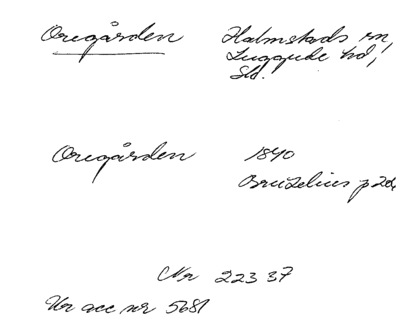 Oregården Halmstads sn,
Luggude hd,
Sk.
Oregården 1840
Bruzelius p 202
Nr 22337
Ur acc nr 5681